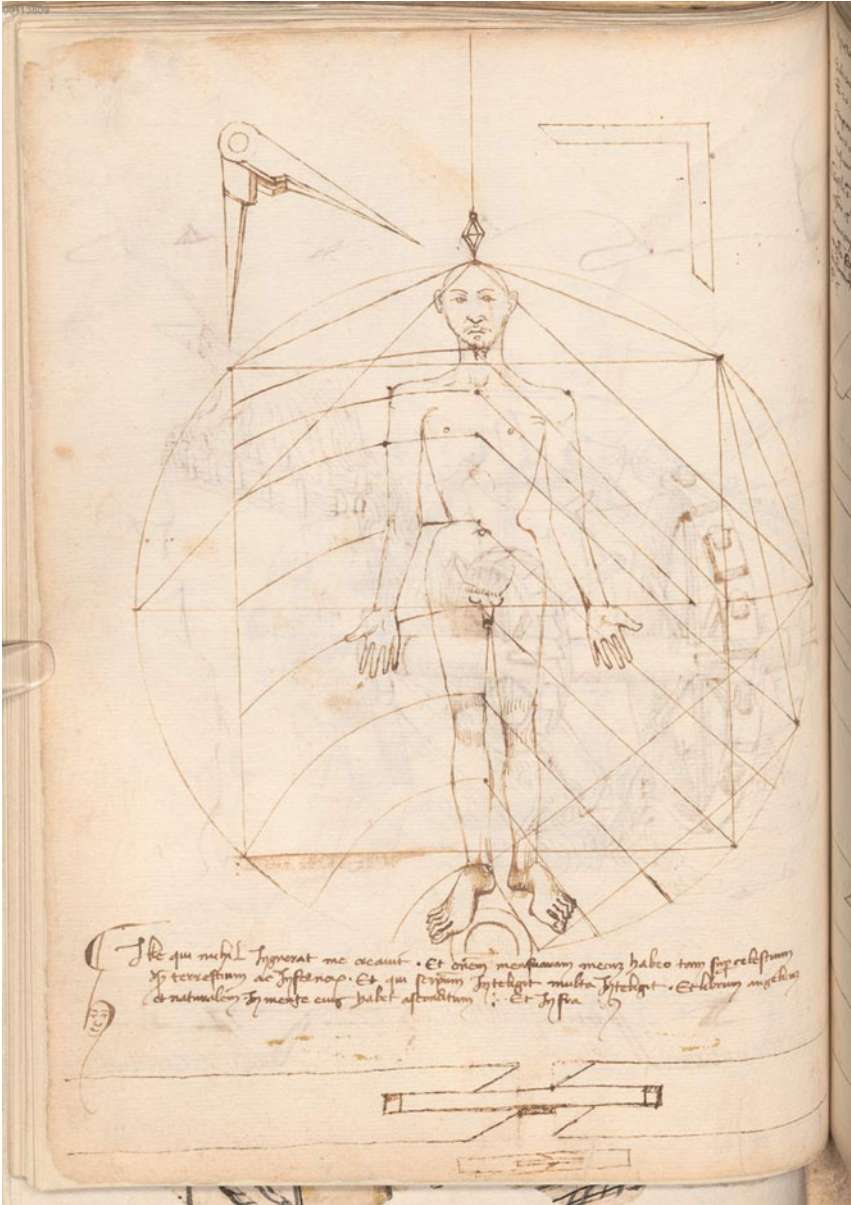 Ille qui nichil Ingnorat me creauit · Et omnem mensuram mecum habeo tam sup celestium
terrestrium ac Infernor · Et qui se ipsum Intelligit multa Intelligit · Et librum
et naturalem In mente eius habet asconditum · Et Infra